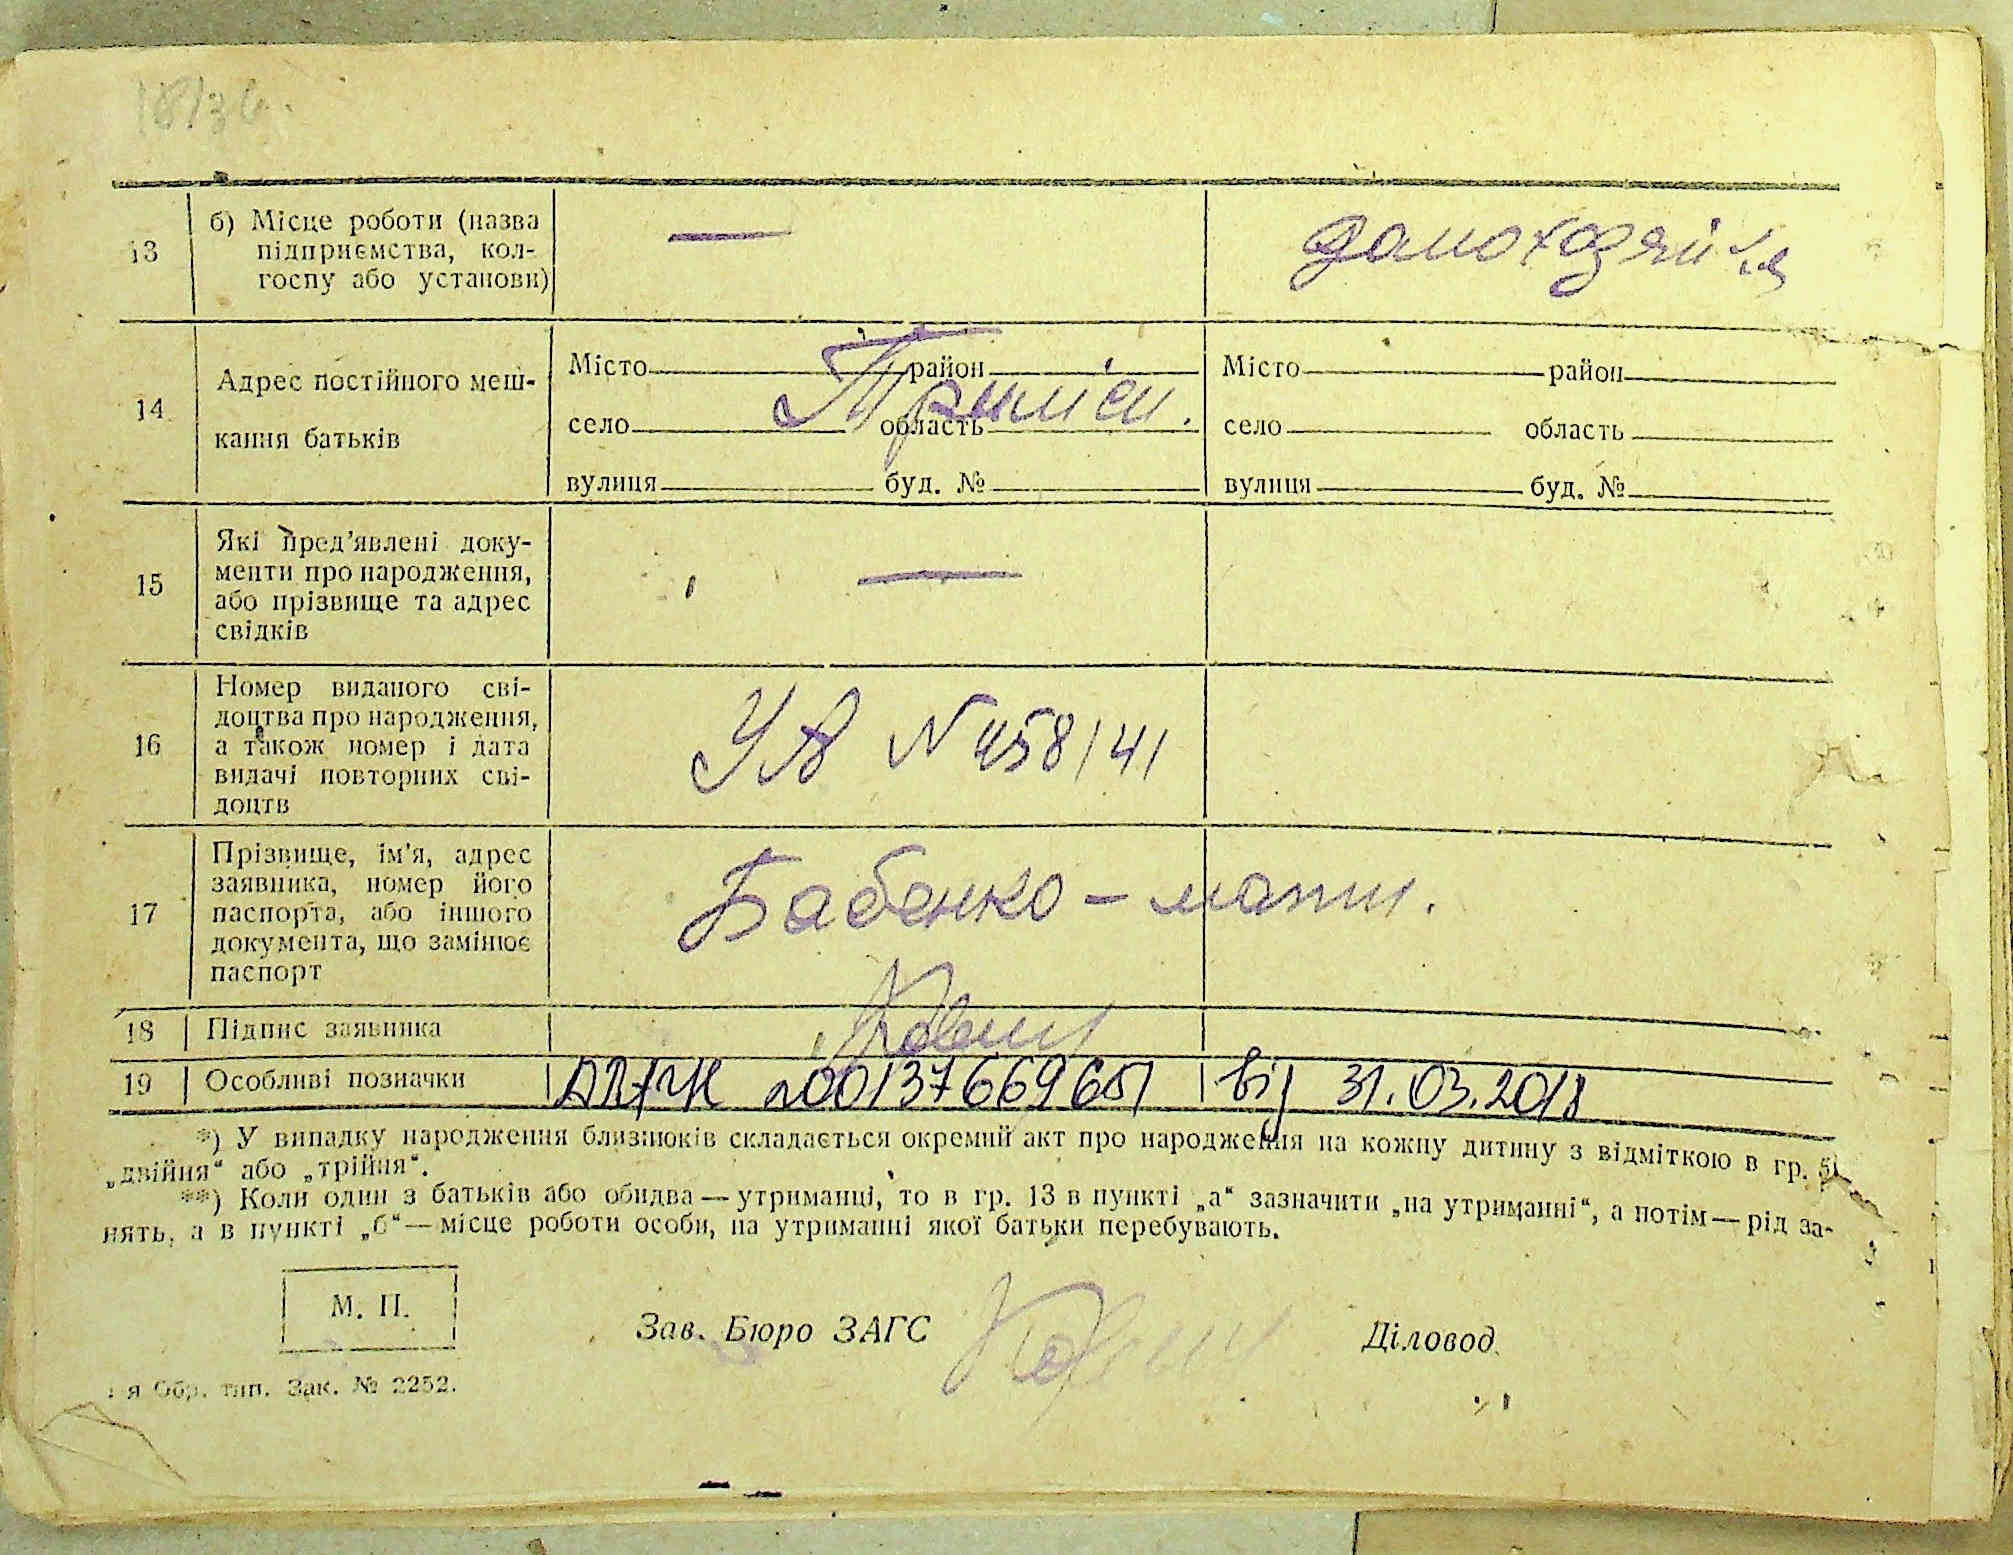 13
б) Місце роботи (назва
підприємства, кол-
госпу або установи)
—
домохозяйка
14
Адрес постійного меш-
кання батьків
Місто район
село область
вулиця буд. №
Місто район
село область
вулиця буд. №
15
Які пред’явлені доку-
менти про народження,
або прізвище та адрес
свідків
—
16
Номер виданого сві-
доцтва про народження,
а також номер і дата
видачі повторних сві-
доцтв
УА №458141
17
Прізвище, ім’я, адрес
заявника, номер його
паспорта, або іншого
документа, що замінює
паспорт
Бабенко – мати.
18 Підпис заявника
19 Особливі позначки
від 31.03.2018
*) У випадку народження близнюків складається окремий акт про народження на кожну дитину з відміткою в гр. 5
„двійня“ або „трійня“.
**) Коли один з батьків або обидва — утриманці, то в гр. 13 в пункті „а“ зазначити „на утриманні“, а потім — рід за-
нять, а в пункті „б“ — місце роботи особи, на утриманні якої батьки перебувають.
М. П.
Зав. Бюро ЗАГС
Діловод
я Обр. тип. Зак. № 2252.